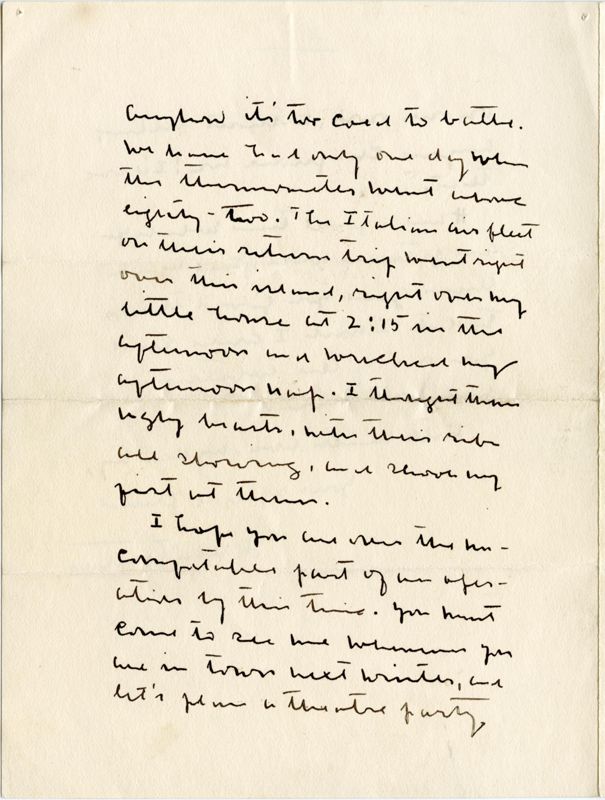 anyhow it's too cold to bathe.
We have had only one day when
the thermometer went above
eighty-two. The Italian air fleet
on their return trip went right
over this island, right over my
little house at 2:15 in the
afternoon and wrecked my
afternoon nap. I thought them
ugly beasts, with their ribs
all showing, and shook my
fist at them.
I hope you are over the un-
comfortable part of an oper-
ation by this time. You must
come to see me whenever you
are in town next winter, and
let's plan a theatre party.